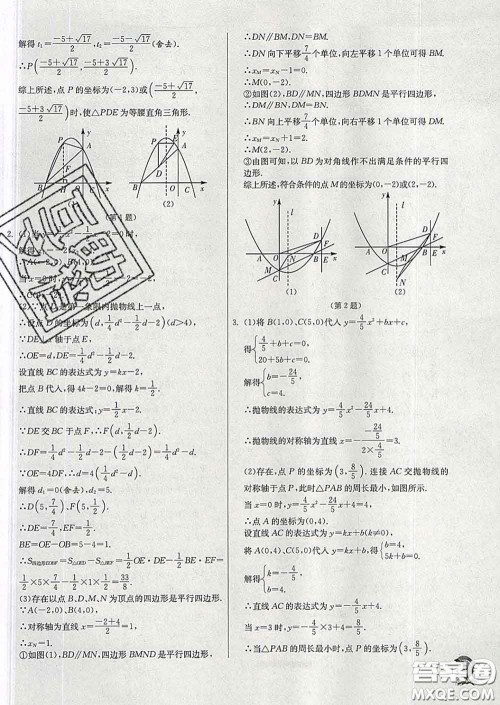 解得 t₁=(-5+√17)/2, t₂=(-5-√17)/2(舍去).
∴P((-5+√17)/2, (-5+3√17)/2).
综上所述,点 P 的坐标为(-2,3)或((-5+√17)/2,
(-5+3√17)/2)时,使△PDE为等腰直角三角形.
(1)
(2)
(第1题)
解得
∴A(-2,0),
当 x=0 时,
∴设点 D 的坐标为(d, 1/4 d²-1/2 d-2)(d>4),
∵DE⊥x轴于点 E,
∴OE=d,DE=1/4 d²-1/2 d-2.
设直线 BC 的表达式为 y=kx-2,
把点 B 代入,得 4k-2=0,解得 k=1/2.
∴直线 BC 的表达式为 y=1/2 x-2.
∵DE 交 BC 于点 F,∴F(d, 1/2 d-2).
∴DF=1/4 d²-1/2 d-2-(1/2 d-2)=1/4 d²-d.
∵OE=4DF,∴d=4(1/4 d²-d).
解得 d₁=0(舍去),d₂=5.
∴D(5, 7/4),F(5, 1/2).
∴DE=7/4,EF=1/2.
BE=OE-OB=5-4=1.
∴S四边形OBDF=S△OED-S△BEF=1/2 OE·DE-1/2 BE·EF=
1/2×5×7/4-1/2×1×1/2=33/8.
(3)存在以点 B、D、M、N 为顶点的四边形是平行四边形.
∵A(-2,0),B(4,0),
∴对称轴为直线 x=(-2+4)/2=1.
∴xN=1.
①如图(1),BD∥MN,四边形 BMND 是平行四边形,
∴DN∥BM,DN=BM.
∵DN 向下平移 7/4 个单位,向左平移 1 个单位可得 BM.
∴xM=xN-1=0.
∴M(0,-2).
②如图(2),BD∥MN,四边形 BDMN 是平行四边形,
∴DM∥BN,DM=BN.
∵BN 向上平移 7/4 个单位,向右平移 1 个单位可得 DM.
∴xM=xN+1=2.
∴M(2,-2).
③由图可知,以 BD 为对角线作不出满足条件的平行四
边形.
综上所述,符合条件的点 M 的坐标为(0,-2)或(2,-2).
(1)
(2)
(第2题)
3. (1)将 B(1,0)、C(5,0)代入 y=4/5 x²+bx+c,
得{4/5+b+c=0, 20+5b+c=0.
解得{b=-24/5, c=4.
∴抛物线的表达式为 y=4/5 x²-24/5 x+4.
∴抛物线的对称轴为直线 x=
(2)存在,点 P 的坐标为(3, 8/5). 连接 AC 交抛物线的
对称轴于点 P,此时△PAB 的周长最小,如图所示.
当 x=0 时,y=4/5 x²-24/5 x+4=4.
∴点 A 的坐标为(0,4).
设直线 AC 的表达式为 y=kx+b(k≠0).
将 A(0,4)、C(5,0)代入 y=kx+b,得{b=4, 5k+b=0.
解得{k=-4/5, b=4.
∴直线 AC 的表达式为 y=-4/5 x+4.
当 x=3 时,y=-4/5 x+4=8/5,
∴当△PAB 的周长最小时,点 P 的坐标为(3, 8/5).
答案圈
MXQE.COM